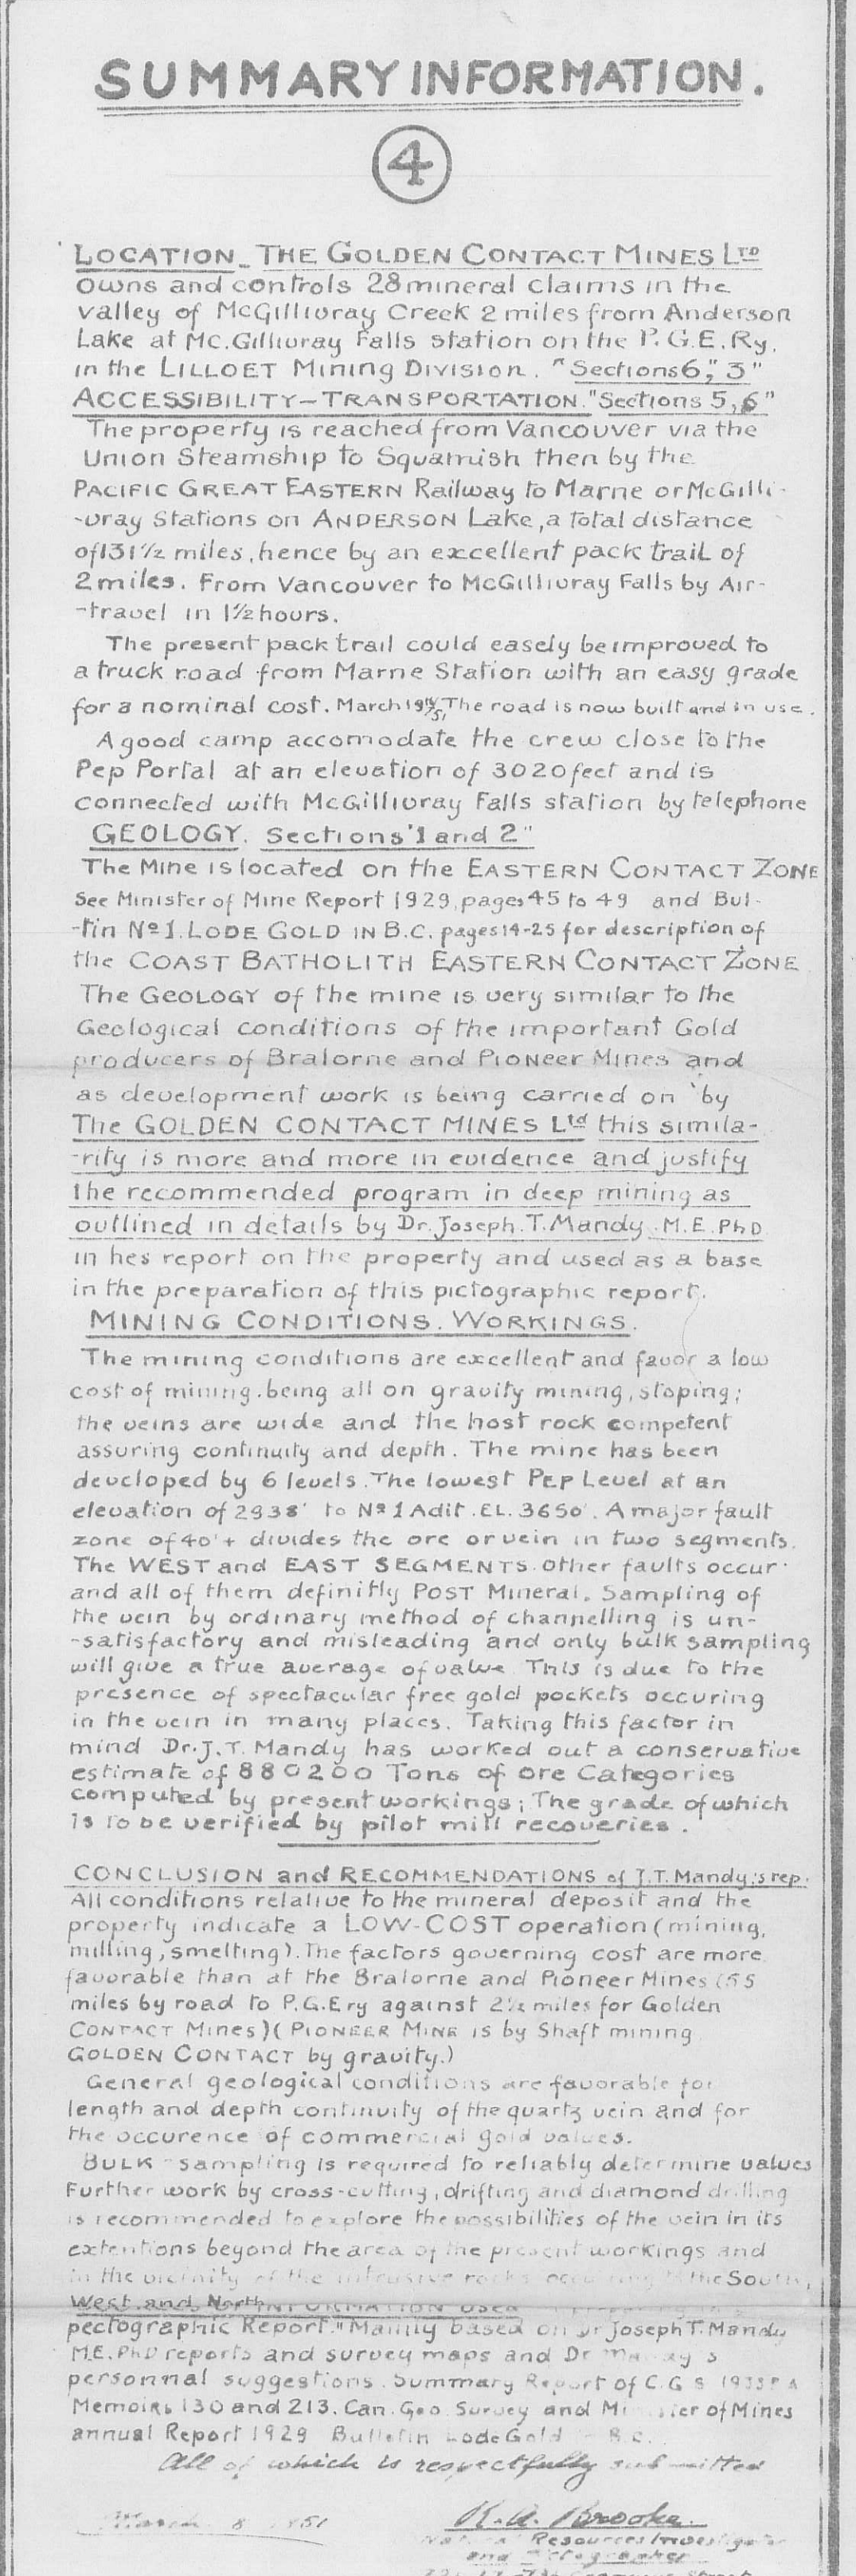 SUMMARY INFORMATION.
4
LOCATION_ THE GOLDEN CONTACT MINES LTD
owns and controls 28 mineral claims in the
valley of McGillivray Creek 2 miles from Anderson
Lake at Mc.Gillivray Falls station on the P.G.E.Ry.
in the LILLOET Mining Division. "Sections 6," 3"
ACCESSIBILITY-TRANSPORTATION."Sections 5,6"
The property is reached from Vancouver via the
Union Steamship to Squamish then by the
PACIFIC GREAT EASTERN Railway to Marne or McGilli-
-vray Stations on ANDERSON Lake, a total distance
of 131 1/2 miles, hence by an excellent pack trail of
2 miles. From Vancouver to McGillivray Falls by Air-
-travel in 1 1/2 hours.
The present pack trail could easely be improved to
a truck road from Marne Station with an easy grade
for a nominal cost. March The road is now built and in use.
A good camp accomodate the crew close to the
Pep Portal at an elevation of 3020 feet and is
connected with McGillivray Falls station by telephone
GEOLOGY. Sections "1 and 2"
The Mine is located on the EASTERN CONTACT ZONE
see Minister of Mine Report 1929, pages 45 to 49 and Bul-
-tin No 1. LODE GOLD IN B.C. pages 14-25 for description of
the COAST BATHOLITH EASTERN CONTACT ZONE
The GEOLOGY of the mine is very similar to the
Geological conditions of the important Gold
producers of Bralorne and Pioneer Mines and
as development work is being carried on by
The GOLDEN CONTACT MINES Ltd this simila-
-rity is more and more in evidence and justify
the recommended program in deep mining as
outlined in details by Dr. Joseph. T. Mandy. M.E. PhD
in hes report on the property and used as a base
in the preparation of this pictographic report.
MINING CONDITIONS. WORKINGS.
The mining conditions are excellent and favor a low
cost of mining. being all on gravity mining, stoping;
the veins are wide and the host rock competent
assuring continuity and depth. The mine has been
developed by 6 levels. The lowest PEP Level at an
elevation of 2938' to No 1 Adit. EL. 3650'. A major fault
zone of 40'+ divides the ore or vein in two segments.
The WEST and EAST SEGMENTS. other faults occur
and all of them definitly POST Mineral. Sampling of
the vein by ordinary method of channelling is un-
-satisfactory and misleading and only bulk sampling
will give a true average of value This is due to the
presence of spectacular free gold pockets occuring
in the vein in many places. Taking this factor in
mind Dr. J. T. Mandy has worked out a conservative
estimate of 880200 Tons of ore Categories
computed by present workings; The grade of which
is to be verified by pilot mill recoveries.
CONCLUSION and RECOMMENDATIONS of J.T. Mandy's rep.
All conditions relative to the mineral deposit and the
property indicate a LOW-COST operation (mining,
milling, smelting). The factors governing cost are more
favorable than at the Bralorne and Pioneer Mines (55
miles by road to P.G.E ry against 2 1/2 miles for Golden
CONTACT Mines) (PIONEER MINE is by Shaft mining
GOLDEN CONTACT by gravity.)
General geological conditions are favorable for
length and depth continuity of the quartz vein and for
the occurence of commercial gold values.
BULK-sampling is required to reliably determine values
Further work by cross-cutting, drifting and diamond drilling
is recommended to explore the possibilities of the vein in its
extentions beyond the area of the present workings and
in the vicinity of the intrusive rocks to the South,
West and North INFORMATION USED
pectographic Report." Mainly based on Dr Joseph T. Mandy
M.E. PhD reports and survey maps and Dr Mandy's
personnal suggestions. Summary Report of C.G.S
Memoirs 130 and 213. Can. Geo. Survey and Minister of Mines
annual Report 1929 Bulletin Lode Gold B.C.
All of which is respectfully submitted
March 8 1951
R.A. Brooke.
Natural Resources Investigator
and Pictographer